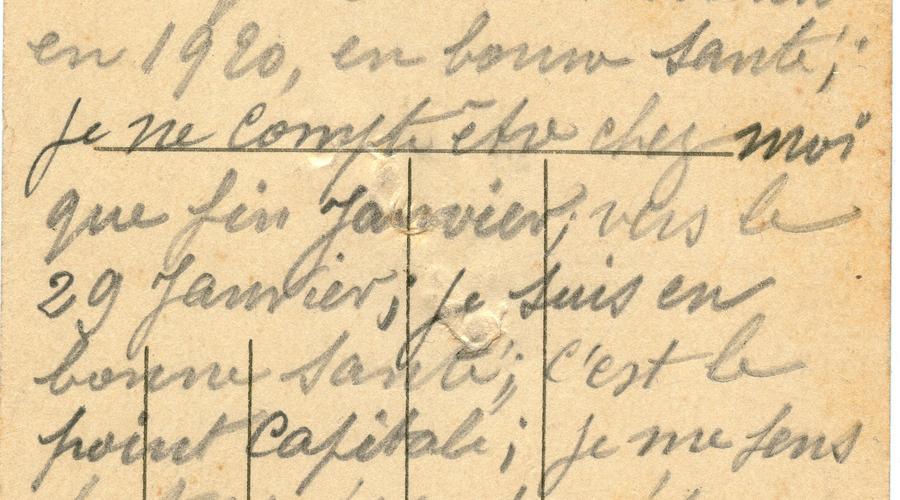 en 1920, en bonne santé;
je ne compte être chez moi
que fin Janvier; vers le
29 Janvier; je suis en
bonne santé; c'est le
point Capitale; je me sens